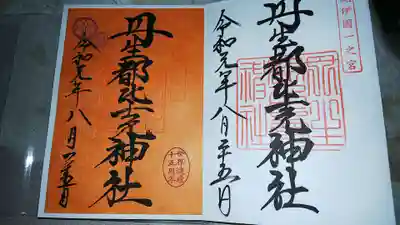 紀伊國一之宮
丹生都比売神社
令和元年八月二十五日
丹生都比売神社
令和元年八月二十五日